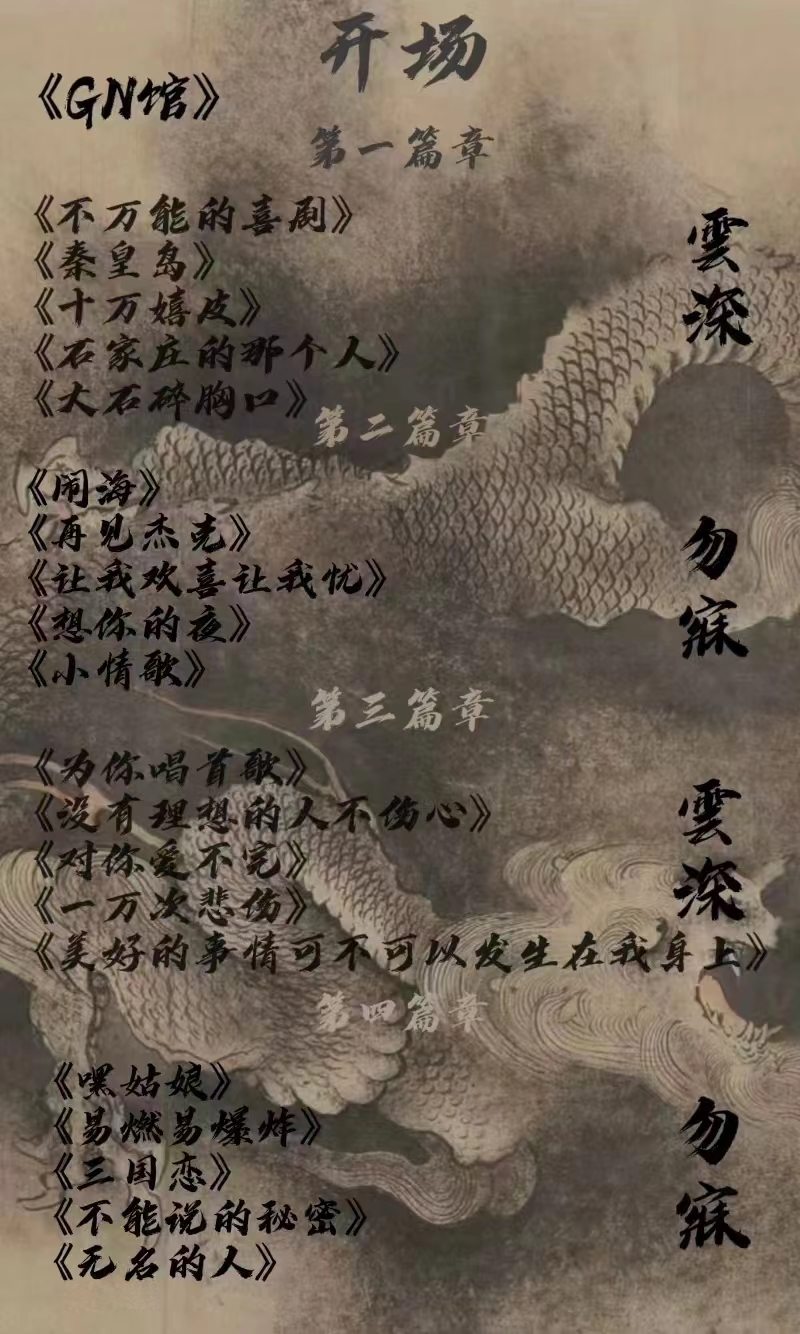 开场
《GN馆》
第一篇章
《不万能的喜剧》
《秦皇岛》
《十万嬉皮》
《石家庄的那个人》
《大石碎胸口》
雲深
第二篇章
《闹海》
《再见杰克》
《让我欢喜让我忧》
《想你的夜》
《小情歌》
勿寐
第三篇章
《为你唱首歌》
《没有理想的人不伤心》
《对你爱不完》
《一万次悲伤》
《美好的事情可不可以发生在我身上》
雲深
第四篇章
《嘿姑娘》
《易燃易爆炸》
《三国恋》
《不能说的秘密》
《无名的人》
勿寐